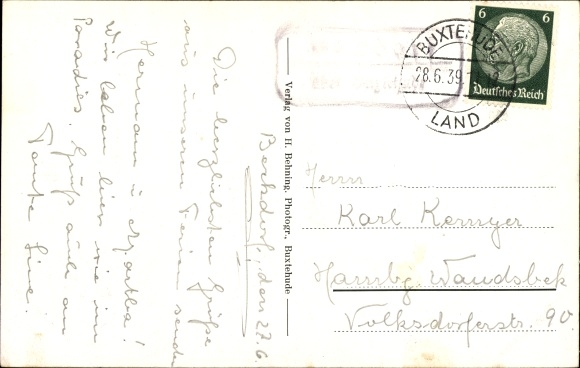 Beckdorf, den 27.6.
Die herzlichsten Grüße
aus unseren Ferien senden
Hermann u. Martha!
Wir leben hier wie im
Paradies. Gruß auch an
Tante Line.
Verlag von H. Behning, Photogr., Buxtehude
BUXTEHUDE
28.6.39
LAND
6 6
Deutsches Reich
Herrn
Karl Kemyer
Hambg. Wandsbek
Volksdorferstr. 90.